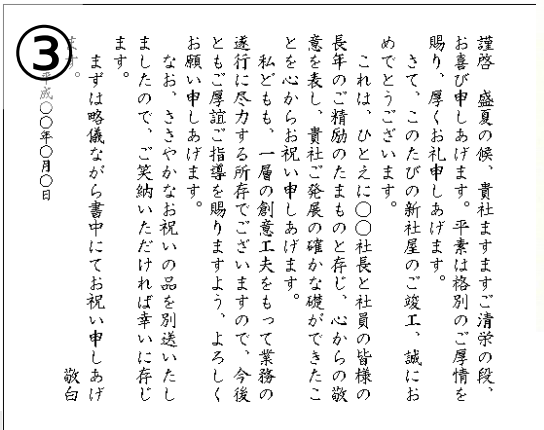 ③
謹啓　盛夏の候、貴社ますますご清栄の段、
お喜び申しあげます。平素は格別のご厚情を
賜り、厚くお礼申しあげます。
さて、このたびの新社屋のご竣工、誠にお
めでとうございます。
これは、ひとえに〇〇社長と社員の皆様の
長年のご精励のたまものと存じ、心からの敬
意を表し、貴社ご発展の確かな礎ができたこ
とを心からお祝い申しあげます。
私どもも、一層の創意工夫をもって業務の
遂行に尽力する所存でございますので、今後
ともご厚誼ご指導を賜りますよう、よろしく
お願い申しあげます。
なお、ささやかなお祝いの品を別送いたし
ましたので、ご笑納いただければ幸いに存じ
ます。
まずは略儀ながら書中にてお祝い申しあげ
ます。　敬白
平成〇〇年〇月〇日